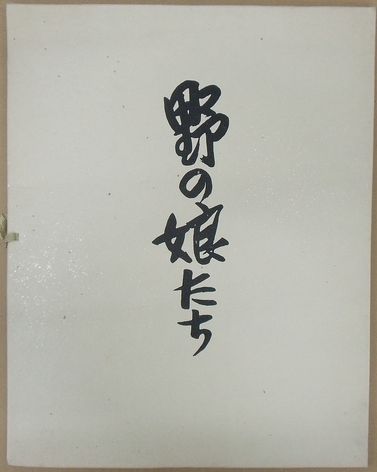 野の娘たち